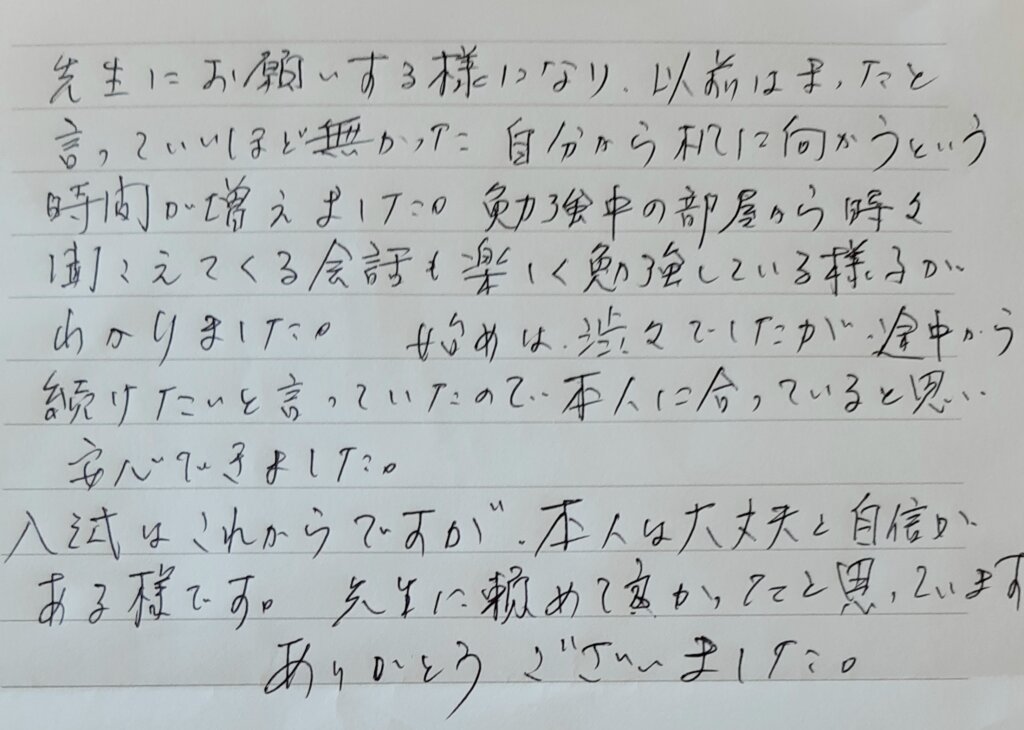 先生にお願いする様になり、以前はまったと
言っていいほど無かった 自分から机に向かうという
時間が増えました。勉強中の部屋から時々
聞こえてくる会話も楽しく勉強している様子が
わかりました。 始めは、渋々でしたが、途中から
続けたいと言っていたので、本人に合っていると思い
安心できました。
入試はこれからですが、本人は大丈夫と自信が
ある様です。 先生に頼めて良かったと思っています
ありがとうございました。